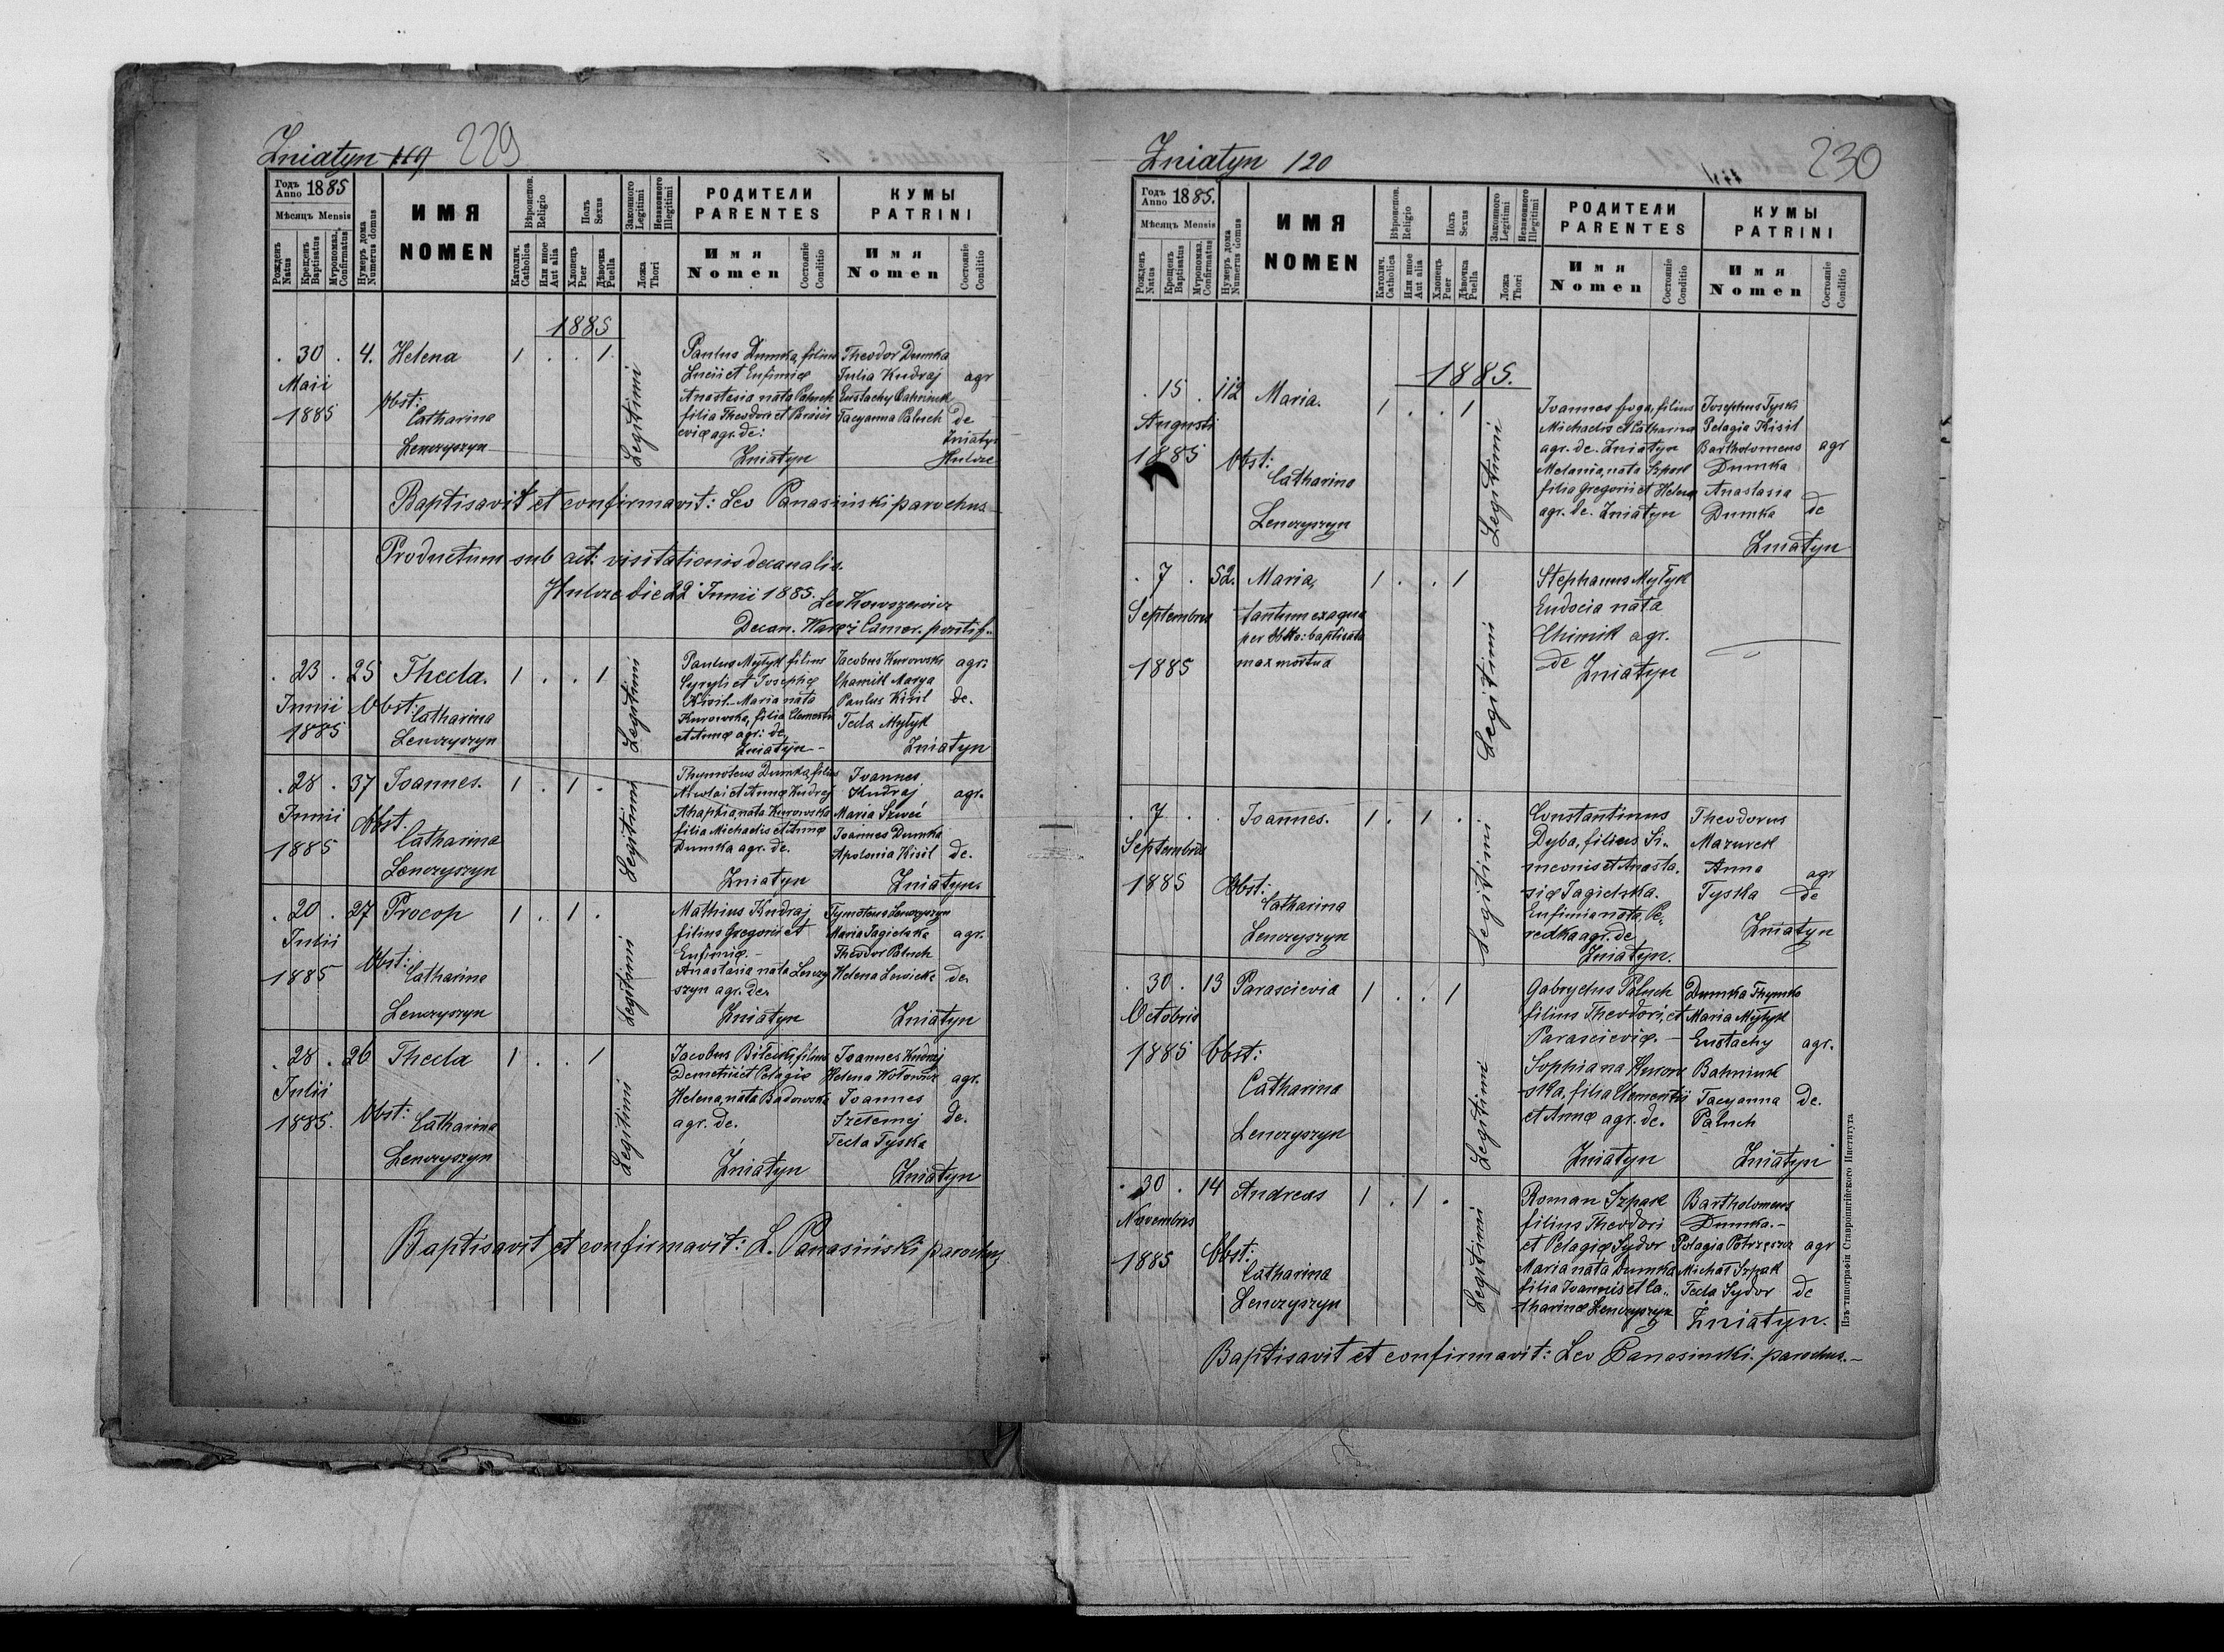 Zniatyn 119 229
Годъ Anno 1885
Мѣсяцъ Mensis
Рожденъ Natus
Крещенъ Baptisatus
Мѵропомаз. Confirmatus
Нумеръ дома Numerus domus
ИМЯ
NOMEN
Вѣроиспов. Religio
Католич. Catholica
Или иное Aut alia
Полъ Sexus
Хлопецъ Puer
Дѣвочка Puella
Законного Legitimi
Незаконного Illegitimi
Ложа Thori
РОДИТЕЛИ
PARENTES
Имя
Nomen
Состояніе Conditio
КУМЫ
PATRINI
Имя
Nomen
Состояніе Conditio
1885
. 30 . 4. Helena 1 . . 1
Maii
1885
Obst:
Catharina
Lenczyszyn
Legitimi
Paulus Dumka, filius
Lucii et Eufimiæ
Anastasia nata Paluch
filia Theodori et Parasce
eviæ agr. de:
Zniatyn
Theodor Dumka
Julia Kudraj agr
Eustachy Bahniuk
Tacyanna Paluch de
Zniatyn
Hulcze
Baptisavit et confirmavit: Leo Panasiński parochus
Productum sub act: visitationis decanalis
Hulcze die 22 Junii 1885. Leo
Decan. Camer. pontif.
. 23 . 25 Thecla. 1 . . 1
Junii
1885
Obst: Catharina
Lenczyszyn
Legitimi
Paulus Mytyk filius
Cyryli et Josephæ
Kisil - Maria nata
Kurowska, filia Clementis
et Annæ agr: de
Zniatyn -
Jacobus Kurowski agr:
Marya
Paulus Kisil de.
Tecla Mytyk
Zniatyn
. 28 . 37 Joannes. 1 . 1 .
Junii
1885
Obst.
Catharina
Lenczyszyn
Legitimi
Thymoteus Dumka, filius
Nicolai et Annæ Kudraj
Ahaphia, nata Kurowska
filia Michaelis et Annæ
Dumka agr. de.
Zniatyn
Joannes
Kudraj agr.
Maria Szweć
Joannes Dumka
Apolonia Kisil de.
Zniatyn.
. 20 . 27 Procop 1 . 1 .
Julii
1885
Obst:
Catharina
Lenczyszyn
Legitimi
Mathius Kudraj,
filius Gregorii et
Eufimiæ. -
Anastasia nata Lenczy
szyn agr. de.
Zniatyn
Tymoteus Lenczyszyn
Maria Jagielska agr.
Theodor Paluch
Helena Lewicka de.
Zniatyn
. 28 . 26 Thecla 1 . . 1
Julii
1885.
Obst: Catharina
Lenczyszyn
Legitimi
Jacobus Bilecki, filius
Demetrii et Pelagiæ
Helena, nata Badowska
agr. de.
Zniatyn
Joannes Kudraj
Helena Wołowicz agr.
Joannes
Szełemej de.
Tecla Tyska
Zniatyn
Baptisavit et confirmavit: L. Panasiński parochus
Zniatyn 120 230
Годъ Anno 1885.
Мѣсяцъ Mensis
Рожденъ Natus
Крещенъ Baptisatus
Мѵропомаз. Confirmatus
Нумеръ дома Numerus domus
ИМЯ
NOMEN
Вѣроиспов. Religio
Католич. Catholica
Или иное Aut alia
Полъ Sexus
Хлопецъ Puer
Дѣвочка Puella
Законного Legitimi
Незаконного Illegitimi
Ложа Thori
РОДИТЕЛИ
PARENTES
Имя
Nomen
Состояніе Conditio
КУМЫ
PATRINI
Имя
Nomen
Состояніе Conditio
1885.
. 15 . 112 Maria. 1 . . 1
Augusti
1885
Obst:
Catharina
Lenczyszyn
Legitimi
Joannes filius
Michaelis et Catharina
agr. de. Zniatyn
Melania, nata Szpak
filia Gregorii et Helena
agr. de. Zniatyn
Josephus Tyski
Pelagia Kisil
Bartholomeus agr
Dumka
Anastasia
Dumka de
Zniatyn
. 7 . 52. Maria, 1 . . 1
Septembris
1885
tantum ex aqua
per Obste: baptisata
max mortua
Legitimi
Stephanus Mytyk
Eudocia nata
Chimik agr.
de Zniatyn
. 7 . . Joannes. 1 . 1 .
Septembris
1885
Obst:
Catharina
Lenczyszyn
Legitimi
Constantinus
Dyba, filius Si-
meonis et Anasta.
siæ Jagielska.
Eufimia nata, Pe-
redka agr. de
Zniatyn.
Theodorus
Mazurek
Anna agr
Tyska de
Zniatyn
. 30 . 13 Parascievia 1 . . 1
Octobris
1885
Obst:
Catharina
Lenczyszyn
Legitimi
Gabryelus Paluch
filius Theodori, et
Parascieviæ. -
Sophia na Kurow
ska, filia Clementis
et Annæ agr. de.
Zniatyn
Dumka Thymko
Maria Mytyk
Eustachy agr.
Bahniuk
Tacyanna de.
Paluch
Zniatyn
. 30 . 14 Andreas 1 . 1 .
Novembris
1885
Obst:
Catharina
Lenczyszyn
Legitimi
Roman Szpak
filius Theodori
et Pelagiæ Sydor
Maria nata Dumka
filia Joannis et Ca-
tharinæ Lenczyszyn
Bartholomeus
Dumka. -
Pelagia agr
Michał Szpak
Tecla Sydor de
Zniatyn.
Baptisavit et confirmavit: Leo Panasinski. parochus. -
Изъ типографіи Ставропигійского Института